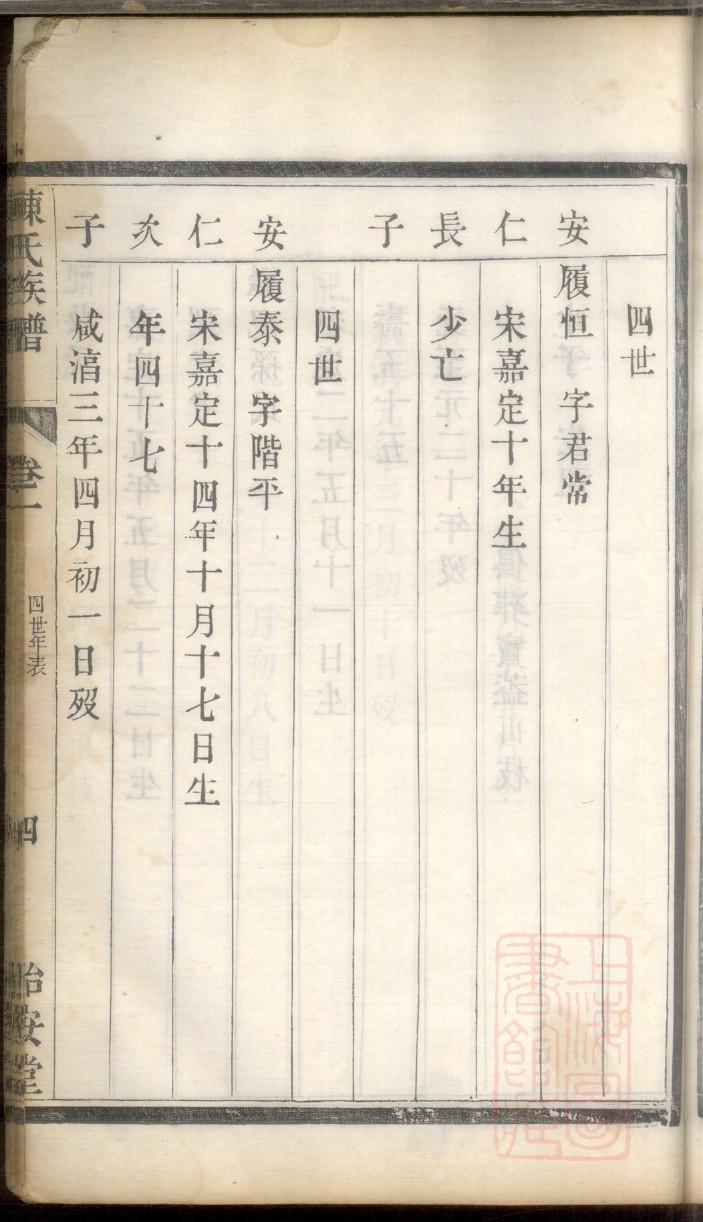 四世
安 履恒 字君常
仁 宋嘉定十年生
長 少亡
子
四世
安 履泰 字階平
仁 宋嘉定十四年十月十七日生
次 年四十七
子 咸淳三年四月初一日歿
陳氏族譜 卷一 四世年表 四 怡安堂
上海圖書館藏